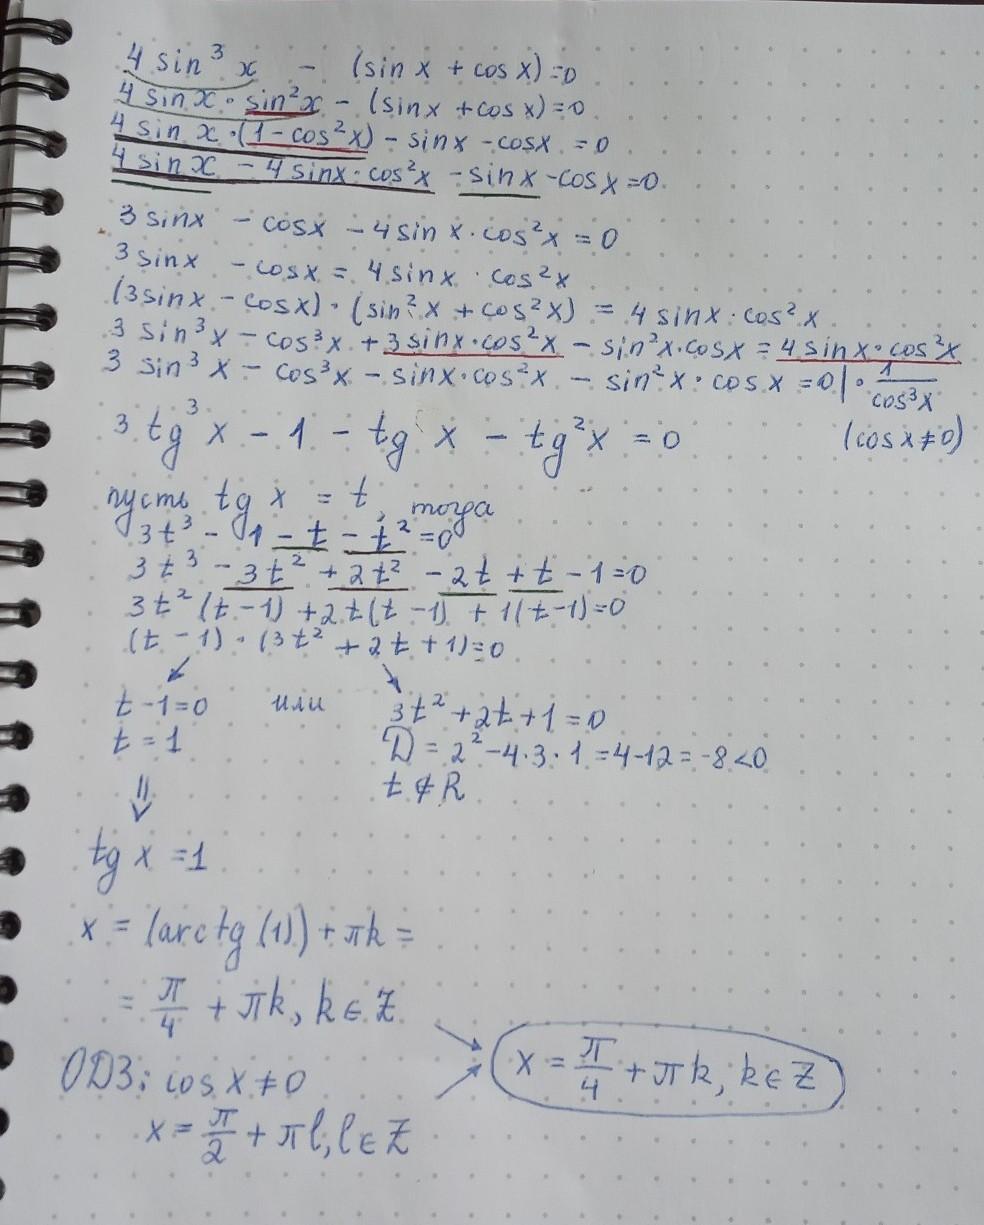 4 sin³ x - (sin x + cos x)=0
4 sin x · sin²x - (sin x + cos x)=0
4 sin x · (1 - cos²x) - sinx - cosx = 0
4 sin x - 4 sinx · cos²x - sinx - cosx = 0
3 sinx - cosx - 4 sin x · cos²x = 0
3 sinx - cosx = 4 sinx · cos²x
(3sinx - cosx) · (sin²x + cos²x) = 4 sinx · cos²x
3 sin³x - cos³x + 3sinx·cos²x - sin²x·cosx = 4 sin x · cos²x
3 sin³x - cos³x - sinx·cos²x - sin²x · cosx = 0 | · 1/cos³x
3 tg³x - 1 - tg x - tg²x = 0 (cosx≠0)
пусть tg x = t, тогда
3t³ - 1 - t - t² = 0
3t³ - 3t² + 2t² - 2t + t - 1 = 0
3t²(t-1) + 2t(t-1) + 1(t-1)=0
(t - 1) · (3t² + 2t + 1) = 0
t - 1 = 0 или 3t² + 2t + 1 = 0
t = 1 D = 2² - 4·3·1 = 4-12 = -8 <0
t ∉ R
⇓
tg x = 1
x = (arctg(1)) + πk =
= π/4 + πk, k ∈ Z
ОДЗ: cos x ≠ 0
x = π/4 + πk, k ∈ Z
x = π/2 + πl, l ∈ Z